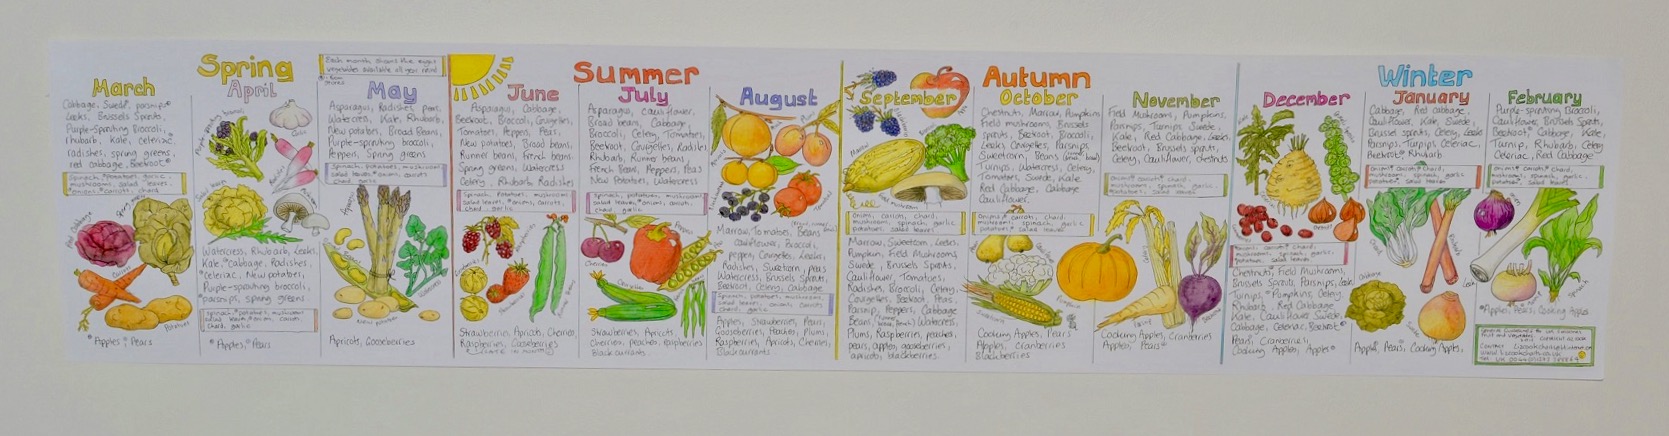 Spring
March
Cabbage, Swede*, parsnips*
Leeks, Brussels Sprouts,
Purple-Sprouting Broccoli,
rhubarb, Kale, celeriac,*
radishes, spring greens,
red cabbage, Beetroot*
Spinach, *potatoes, garlic,
mushrooms, salad leaves,
*onions, *carrots, chard
Red Cabbage
Spring greens
Carrots
Potatoes
*Apples, *Pears
April
Purple sprouting broccoli
Garlic
Radishes
Salad leaves
Watercress, Rhubarb, Leeks,
Kale, *Cabbage, Radishes,
*Celeriac, New potatoes,
Purple-sprouting broccoli,
*parsnips, spring greens
spinach, *potatoes, mushrooms
salad leaves, *onions, carrots,
chard, garlic
*Apples, *Pears
Each month shows the eight
vegetables available all year round
*from stores
May
Asparagus, Radishes, peas,
Watercress, Kale, Rhubarb,
New potatoes, Broad Beans,
Purple-sprouting broccoli,
Peppers, Spring greens
Spinach, *potatoes, mushrooms
salad leaves, *onions, carrots
chard, garlic
Asparagus
Watercress
New potatoes
Apricots, Gooseberries
Summer
June
Asparagus, Cabbage,
Beetroot, Broccoli, Courgettes,
Tomatoes, Peppers, Peas,
New potatoes, Broad beans,
Runner beans, French beans,
Spring greens, Watercress
Celery, Rhubarb, Radishes
Spinach, Potatoes, mushrooms
salad leaves, *onions, carrots,
chard, garlic
Raspberries
Strawberries
Strawberries, Apricots, Cherries,
Raspberries, Gooseberries
July
Asparagus, Cauliflower,
Broad beans, Cabbage,
Broccoli, Celery, Tomatoes,
Beetroot, Courgettes, Radishes
Rhubarb, Runner beans
French Beans, Peppers, Peas
New Potatoes, Watercress
Spinach, potatoes, mushrooms
salad leaves, onions, carrots,
chard, garlic
Cherries
Peppers
Courgette
Strawberries, Apricots,
Cherries, peaches, raspberries
Blackcurrants
August
Apricots
Plums
Peaches
Tomatoes
Blackcurrants
Marrow, Tomatoes, Beans
Cauliflower, Broccoli,
peppers, Courgettes, Leeks,
Radishes, Sweetcorn, Peas
Watercress, Brussels Sprouts,
Beetroot, Celery, Cabbage
Spinach, potatoes, mushrooms,
salad leaves, onions, carrots
chard, garlic
Apples, Strawberries, Pears,
Gooseberries, Peaches, Plums,
Raspberries, Apricots, Cherries,
Blackcurrants
Autumn
September
Marrow
Broccoli
Field mushroom
Onions, carrots, chard,
mushrooms, spinach, garlic
potatoes, salad leaves
Marrow, Sweetcorn, Leeks,
Pumpkin, Field Mushrooms,
Swede, Brussels Sprouts,
Cauliflower, Tomatoes,
Radishes, Broccoli, Celery,
Courgettes, Beetroot, Peas,
Parsnip, Peppers, Cabbage
Beans, Watercress,
Plums, Raspberries, peaches,
pears, apples, gooseberries,
apricots, blackberries
October
Chestnuts, Marrow, Pumpkins
Field mushrooms, Brussels
sprouts, Beetroot, Broccoli,
Leeks, Courgettes, Parsnips,
Sweetcorn, Beans
Turnips, Watercress, Celery,
Tomatoes, Swede, Kale
Red Cabbage, Cabbage
Cauliflower
Onions, *carrots, chard,
mushrooms, spinach, garlic
potatoes, *salad leaves
Sweetcorn
Pumpkin
Cooking Apples, Pears
Apples, Cranberries
Blackberries
November
Field Mushrooms, Pumpkins,
Parsnips, Turnips, Swede,
Kale, Red Cabbage, Leeks
Beetroot, Brussels Sprouts,
Celery, Cauliflower, Chestnuts
onions* carrots* chard,
mushrooms, spinach, garlic,
potatoes*, salad leaves
Parsnip
Beetroot
Cooking Apples, Cranberries
Apples, Pears*
Winter
December
Kale
Brussels Sprouts
Celeriac
Cranberries
Chestnuts
onions*, carrots*, chard,
mushrooms, spinach, garlic
potatoes*, salad leaves
Chestnuts, Field Mushrooms,
Brussels Sprouts, Parsnips, Leeks
Turnips, *Pumpkins, Celery,
Rhubarb, Red Cabbage
Kale, Cauliflower, Swede,
Cabbage, Celeriac, Beetroot*
Pears, Cranberries,
Cooking Apples, Apples*
January
Cabbage, Red Cabbage,
Cauliflower, Kale, Swede,
Brussel sprouts, Celery, Leeks
Parsnips, Turnips, Celeriac,
Beetroot*, Rhubarb
Onions*, carrots*, Chard,
mushrooms, spinach, garlic
potatoes*, salad leaves
Chard
Rhubarb
Cabbage
Swede
Apples*, Pears*, Cooking Apples*,
February
Purple-sprouting Broccoli,
Cauliflower, Brussels Sprouts,
Beetroot*, Cabbage, Kale,
Turnip, Rhubarb, Celery
Celeriac, Red Cabbage
onions*, carrots*, chard,
mushrooms, spinach, garlic
potatoes*, salad leaves
Onions
Leek
Turnip
Spinach
*Apples, *Pears, Cooking Apples
General Guidelines for UK Consumer
Fruit and Vegetables